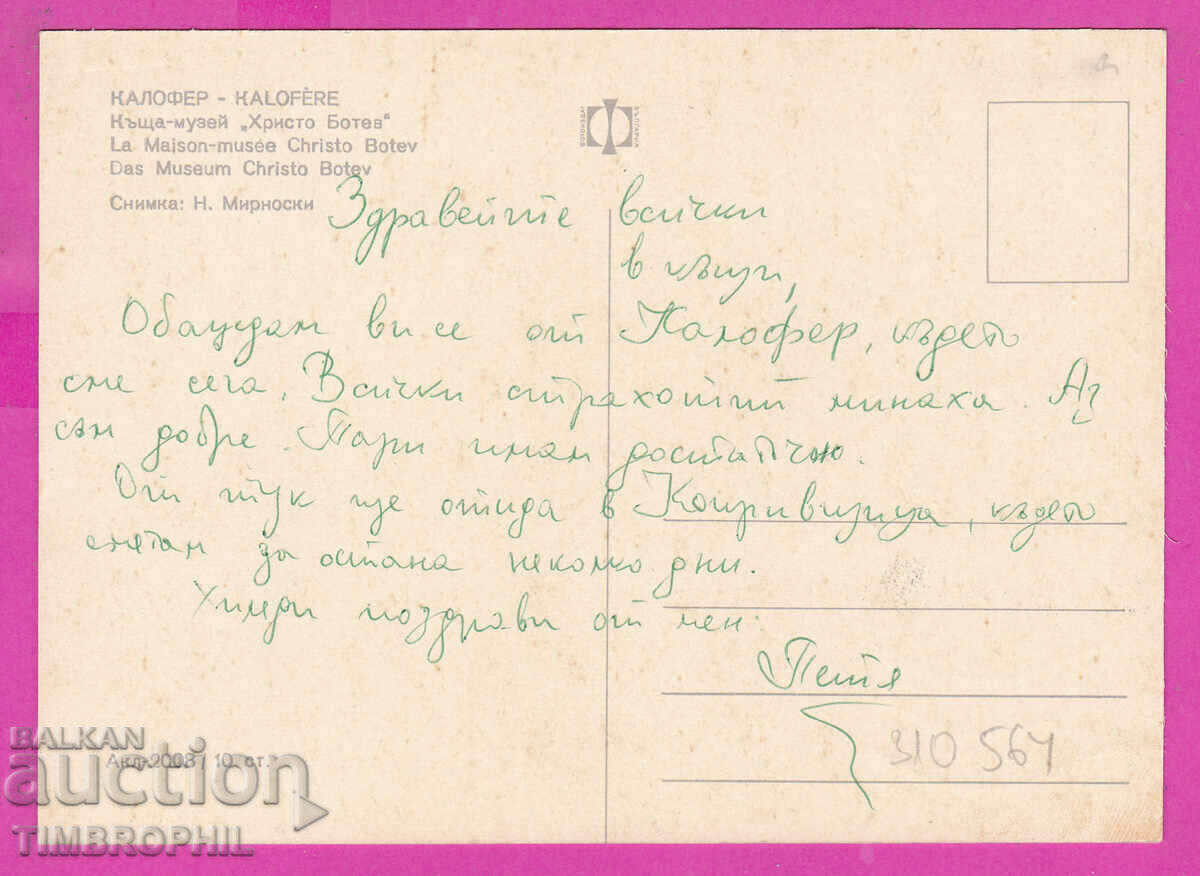 КАЛОФЕР - KALOFÈRE
Къща-музей „Христо Ботев“
La Maison-musée Christo Botev
Das Museum Christo Botev
Снимка: Н. Мирноски
ФОТОИЗДАТ БЪЛГАРИЯ
Здравейте всички
в къщи,
Обаждам ви се от Калофер, където
сме сега. Всички страхотии минаха. Аз
съм добре. Пари имам достатъчно.
От тук ще отида в Копривщица, където
смятам да остана неколко дни.
Хиляди поздрави от мен.
Петя
310 564
Акл-2003 / 10 ст.
BALKAN
auction
TIMBROPHIL